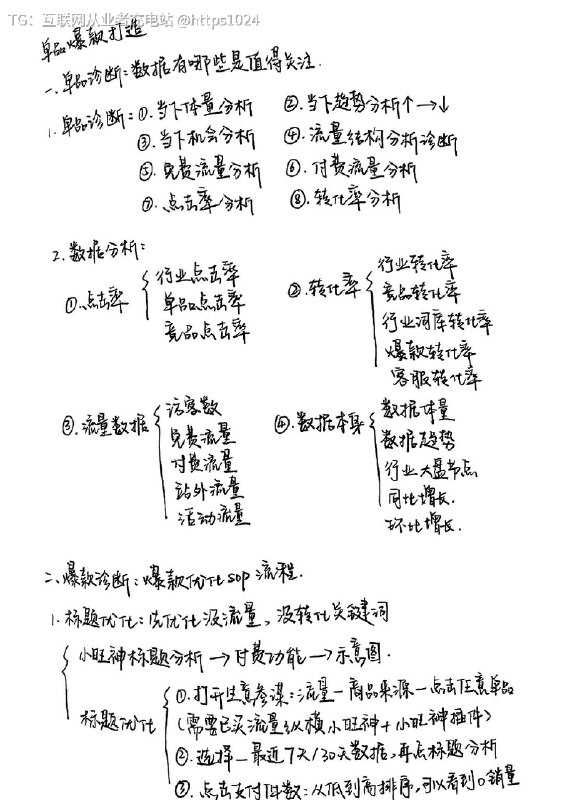 TG：互联网从业者充电站 @https1024
单品爆款打造
一、单品诊断：数据有哪些是值得关注.
1. 单品诊断：①.当下体量分析 ②.当下趋势分析↑→↓
③.当下机会分析 ④.流量结构分析诊断
⑤.免费流量分析 ⑥.付费流量分析
⑦.点击率分析 ⑧.转化率分析
2.数据分析：
①.点击率
行业点击率
单品点击率
竞品点击率
②.转化率
行业转化率
竞品转化率
行业词库转化率
爆款转化率
客服转化率
③.流量数据
访客数
免费流量
付费流量
站外流量
活动流量
④.数据本身
数据体量
数据趋势
行业大盘节点
同比增长.
环比增长.
二、爆款诊断：爆款优化sop流程.
1.标题优化：先优化没流量，没转化关键词
小旺神标题分析→付费功能→示意图.
标题优化
①.打开生意参谋：流量—商品来源—点击任意单品
(需要已买流量纵横小旺神+小旺神插件)
②.选择—最近7天/30天数据，再点标题分析
③.点击支付件数：从低到高排序，可以看到0销量